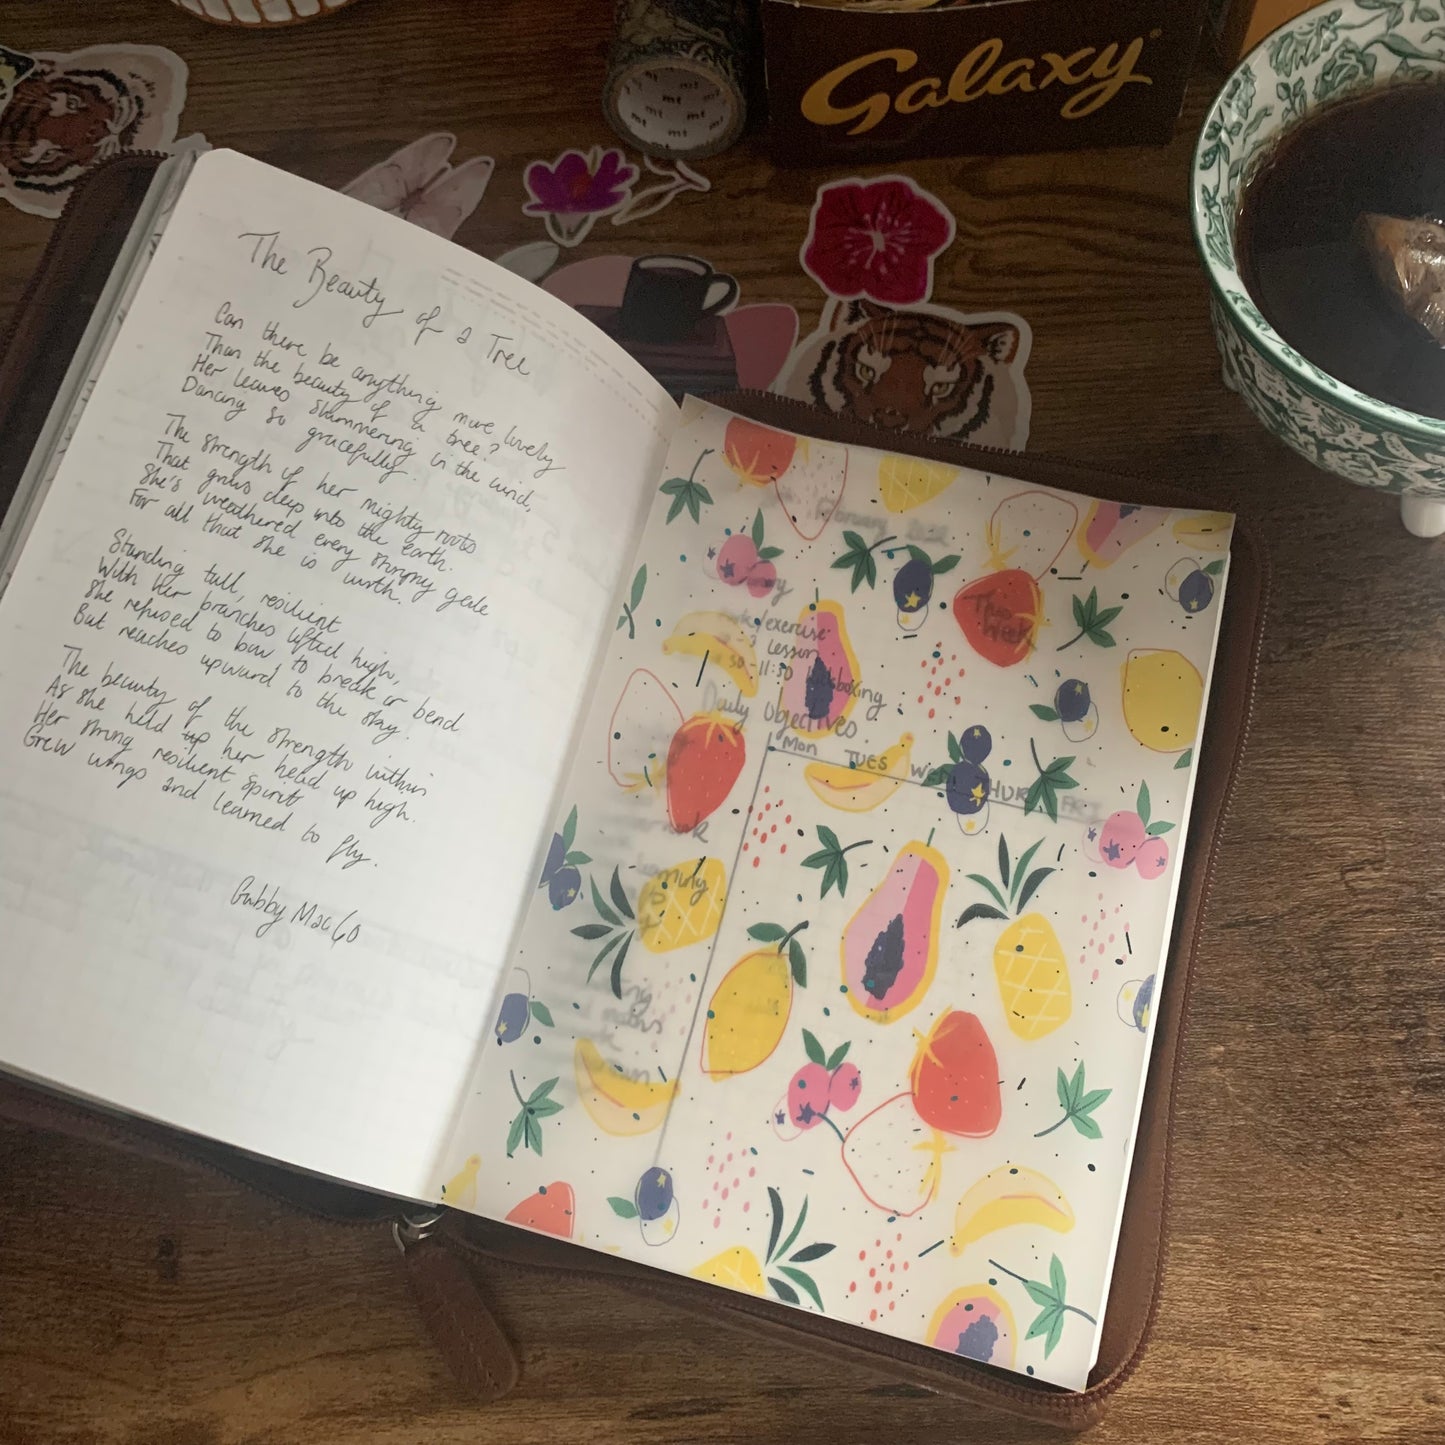 Galaxy
mt
mt
mt
The Beauty of a Tree
Can there be anything more lovely
Than the beauty of a tree?
Her leaves shimmering in the wind,
Dancing so gracefully.
The strength of her mighty roots
That grows deep into the earth.
She's weathered every stormy gale
For all that she is worth.
Standing tall, resilient
With her branches lifted high,
She refused to bow to break or bend
But reaches upward to the sky.
The beauty of the strength within
As she held up her head up high.
Her strong resilient spirit
Grew wings and learned to fly.
Gabby Mac
February
This
Week
/exercise
-3 Lesson
30-11:30 kickboxing
Daily Objectives
Mon TUES WED THUR FRI
maths